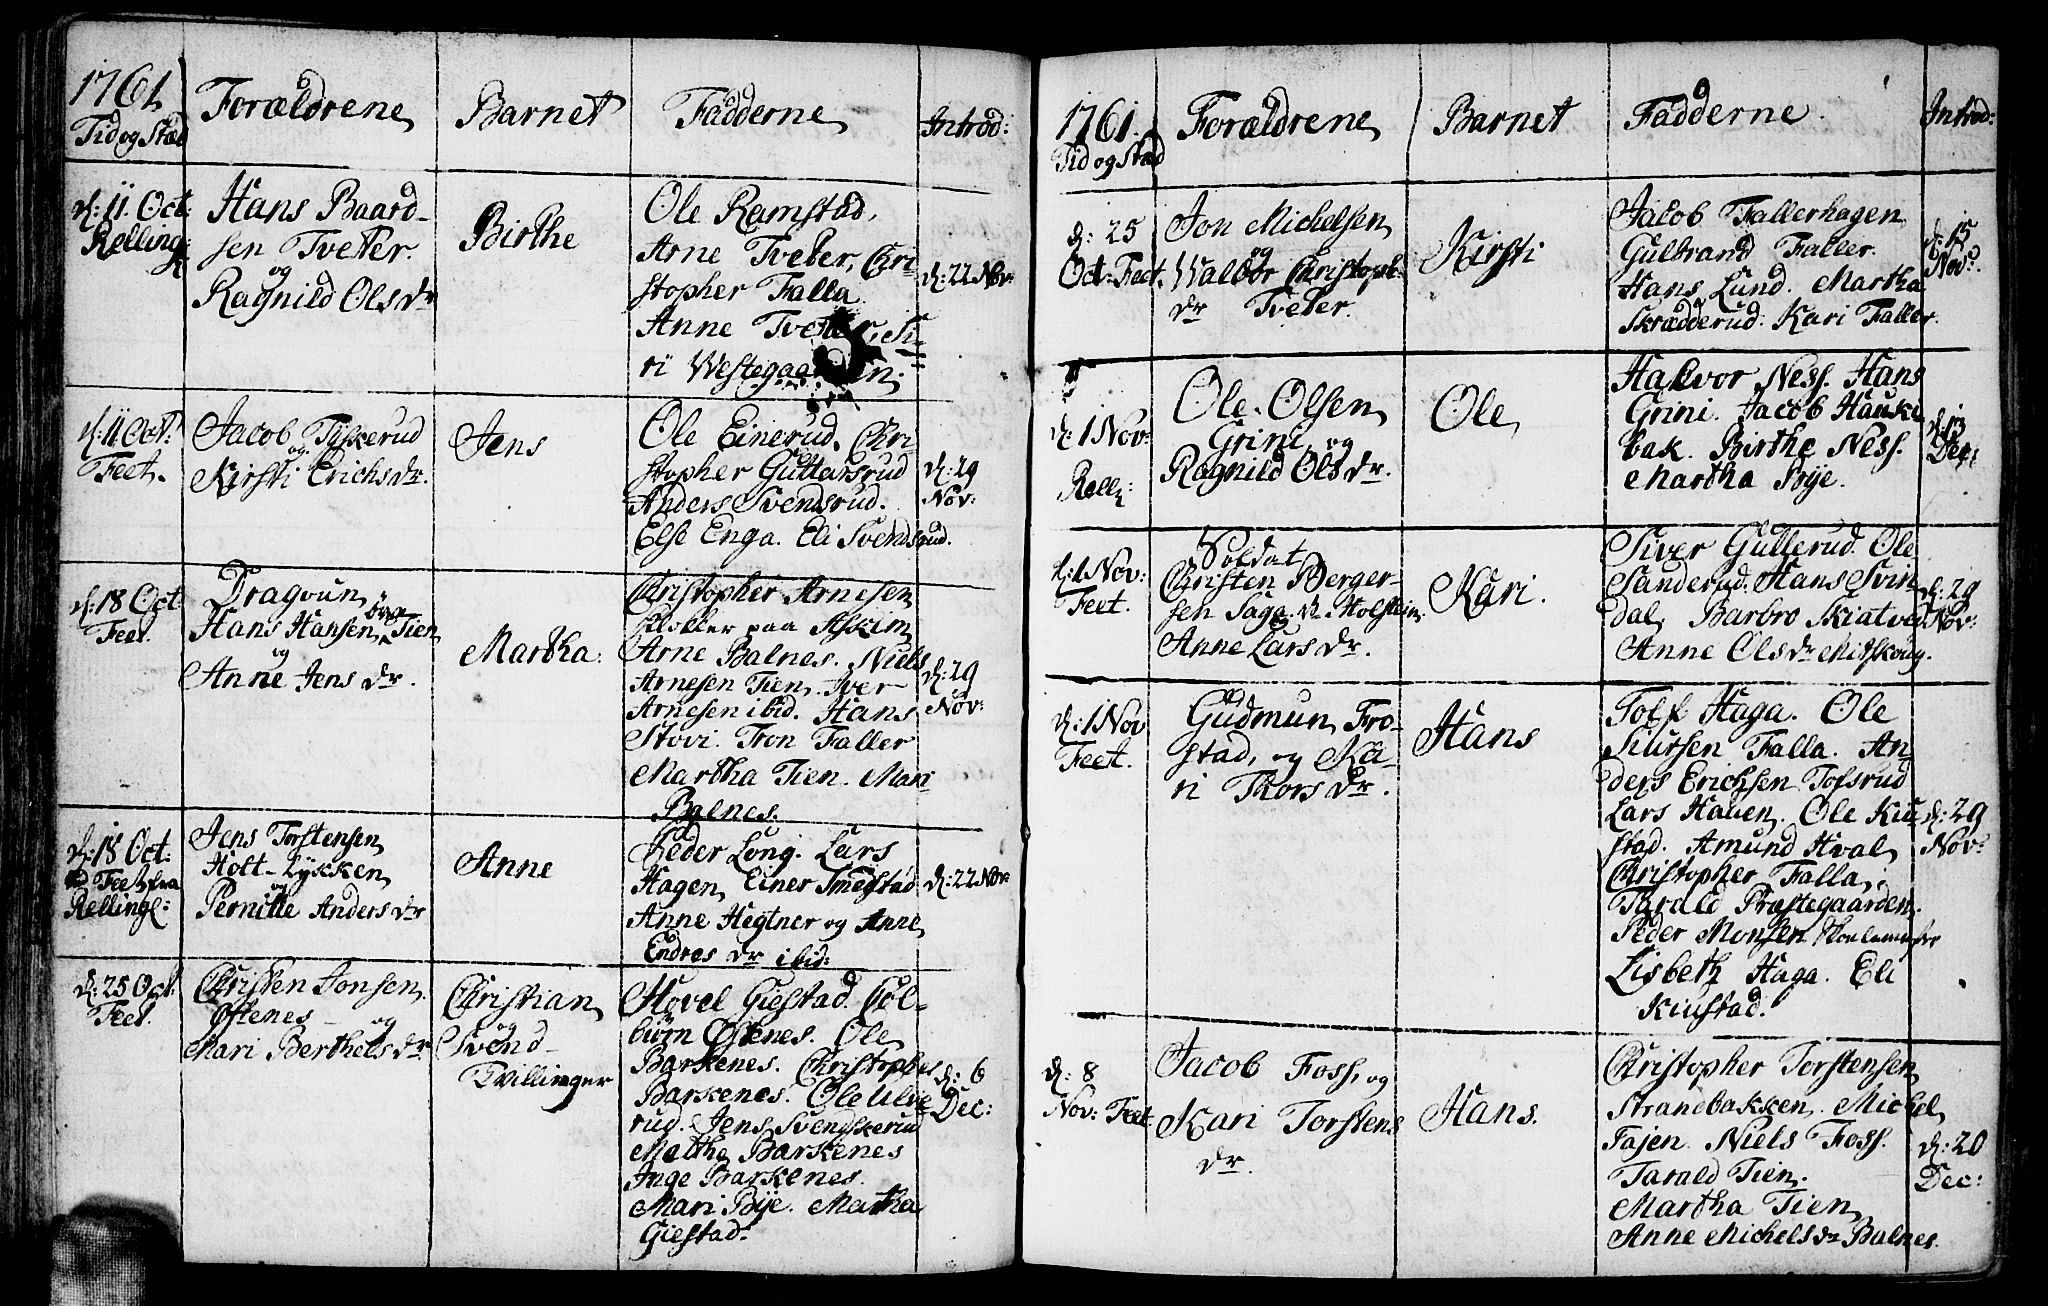 1761
Tid og Stæd
Forældrene
Barnet
Fadderne
Introd:
d: 11. Oct:
Relling:
Hans Baard-
sen Tveter.
og
Ragnild Olsdr
Birthe
Ole Ramstad,
Arne Tveter, Chri-
stopher Falla
Anne Tveter, Si-
ri Westegaarden:
d: 22 Nov:
d: 11 Oct:
Feet.
Jacob Tyskerud
og
Kirsti Erichsdr.
Jens
Ole Einerud. Chri
stopher Guttersrud
Anders Svendsrud.
Else Enga. Eli Svendsrud.
d: 29
Nov:
d: 18 Oct
Feet.
Dragoun
Hans Hansen fra Tien
og
Anne Jens dr.
Martha:
Christopher Arnesen
Klokker paa Askim
Arne Balnes. Niels
Arnesen Tien. Iver
Arnesen ibid. Hans
Stovi. Tron Faller
Martha Tien. Mari
Balnes.
d: 29
Nov:
d: 18 Oct:
Feet fra
Relling:
Jens Torstensen
Holt-Lycken
og
Pernille Anders dr
Anne
Peder Long. Lars
Hagen, Einer Smedstad
Anne Hegtner og Anne
Endres dr ibid:
d: 22 Nov:
d: 25 Oct:
Feet.
Christen Jonsen
Østenes og
Mari Berthels dr
Christian
og
Svend
Tvillinger
Hovel Giestad. Col-
biørn Østenes. Ole
Barkenes. Christopher
Barkenes. Ole Ulve
rud. Jens Svendskerud
Malthe Barkenes
Inge Barkenes.
Mari Bye. Martha
Giestad.
d: 6
Dec:
1761.
Tid og Stæd
Forældrene
Barnet
Fadderne.
Introd:
d: 25
Oct: Feet.
Jon Michelsen
og
Walbor Christoph-
dr Tveter.
Kirsti
Jacob Fallerhagen
Gulbrand Faller.
Hans Lund. Martha
Skrædderud. Kari Faller.
d: 15
Nov:
d: 1 Nov:
Rell:
Ole Olsen
Grini og
Ragnild Olsdr.
Ole
Halvor Ness. Hans
Grini. Jacob Hauke
bak. Birthe Ness.
Martha Srye.
d: 13
Dec:
d: 1 Nov:
Feet.
Soldat
Christen Berger-
sen Saga Holstein
Anne Lars dr.
Kari.
Siver Gutterud. Ole
Sanderud. Hans Svin
dal, Barbro Skiatved
Anne Olsdr Mitskoug.
d: 29
Nov:
d: 1 Nov
Feet.
Gudmun Fro-
stad, og Ka-
ri Thors dr.
Hans
Tolf Haga. Ole
Siursen Falla. An
ders Erichsen Tofsrud
Lars Hauen. Ole Kiu
stad. Amund Hval
Christopher Falla,
Tarald Præstegaarden.
Peder Monsen Skolemester
Lisbeth Haga. Eli
Kiustad.
d: 29
Nov:
d: 8
Nov: Feet
Jacob Foss, og
Kari Torstens
dr.
Hans.
Christopher Torstensen
Strandbakken. Michel
Tajen. Niels Foss.
Tarald Tien.
Martha Tien
Anne Michelsdr Balnes.
d: 20
Dec: